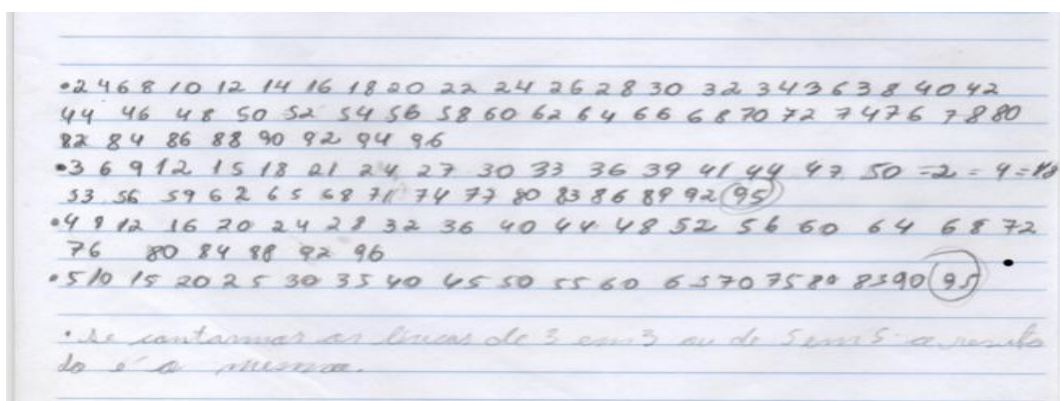 •2 4 6 8 10 12 14 16 18 20 22 24 26 28 30 32 34 36 38 40 42
44 46 48 50 52 54 56 58 60 62 64 66 68 70 72 74 76 78 80
82 84 86 88 90 92 94 96
•3 6 9 12 15 18 21 24 27 30 33 36 39 41 44 47 50 =2 = 4 =
53 56 59 62 65 68 71 74 77 80 83 86 89 92 95
•4 8 12 16 20 24 28 32 36 40 44 48 52 56 60 64 68 72
76 80 84 88 92 96
•5 10 15 20 25 30 35 40 45 50 55 60 65 70 75 80 85 90 95
• se contarmos as de 3 em 3 ou de 5 em 5 o resulta
do é o mesmo.